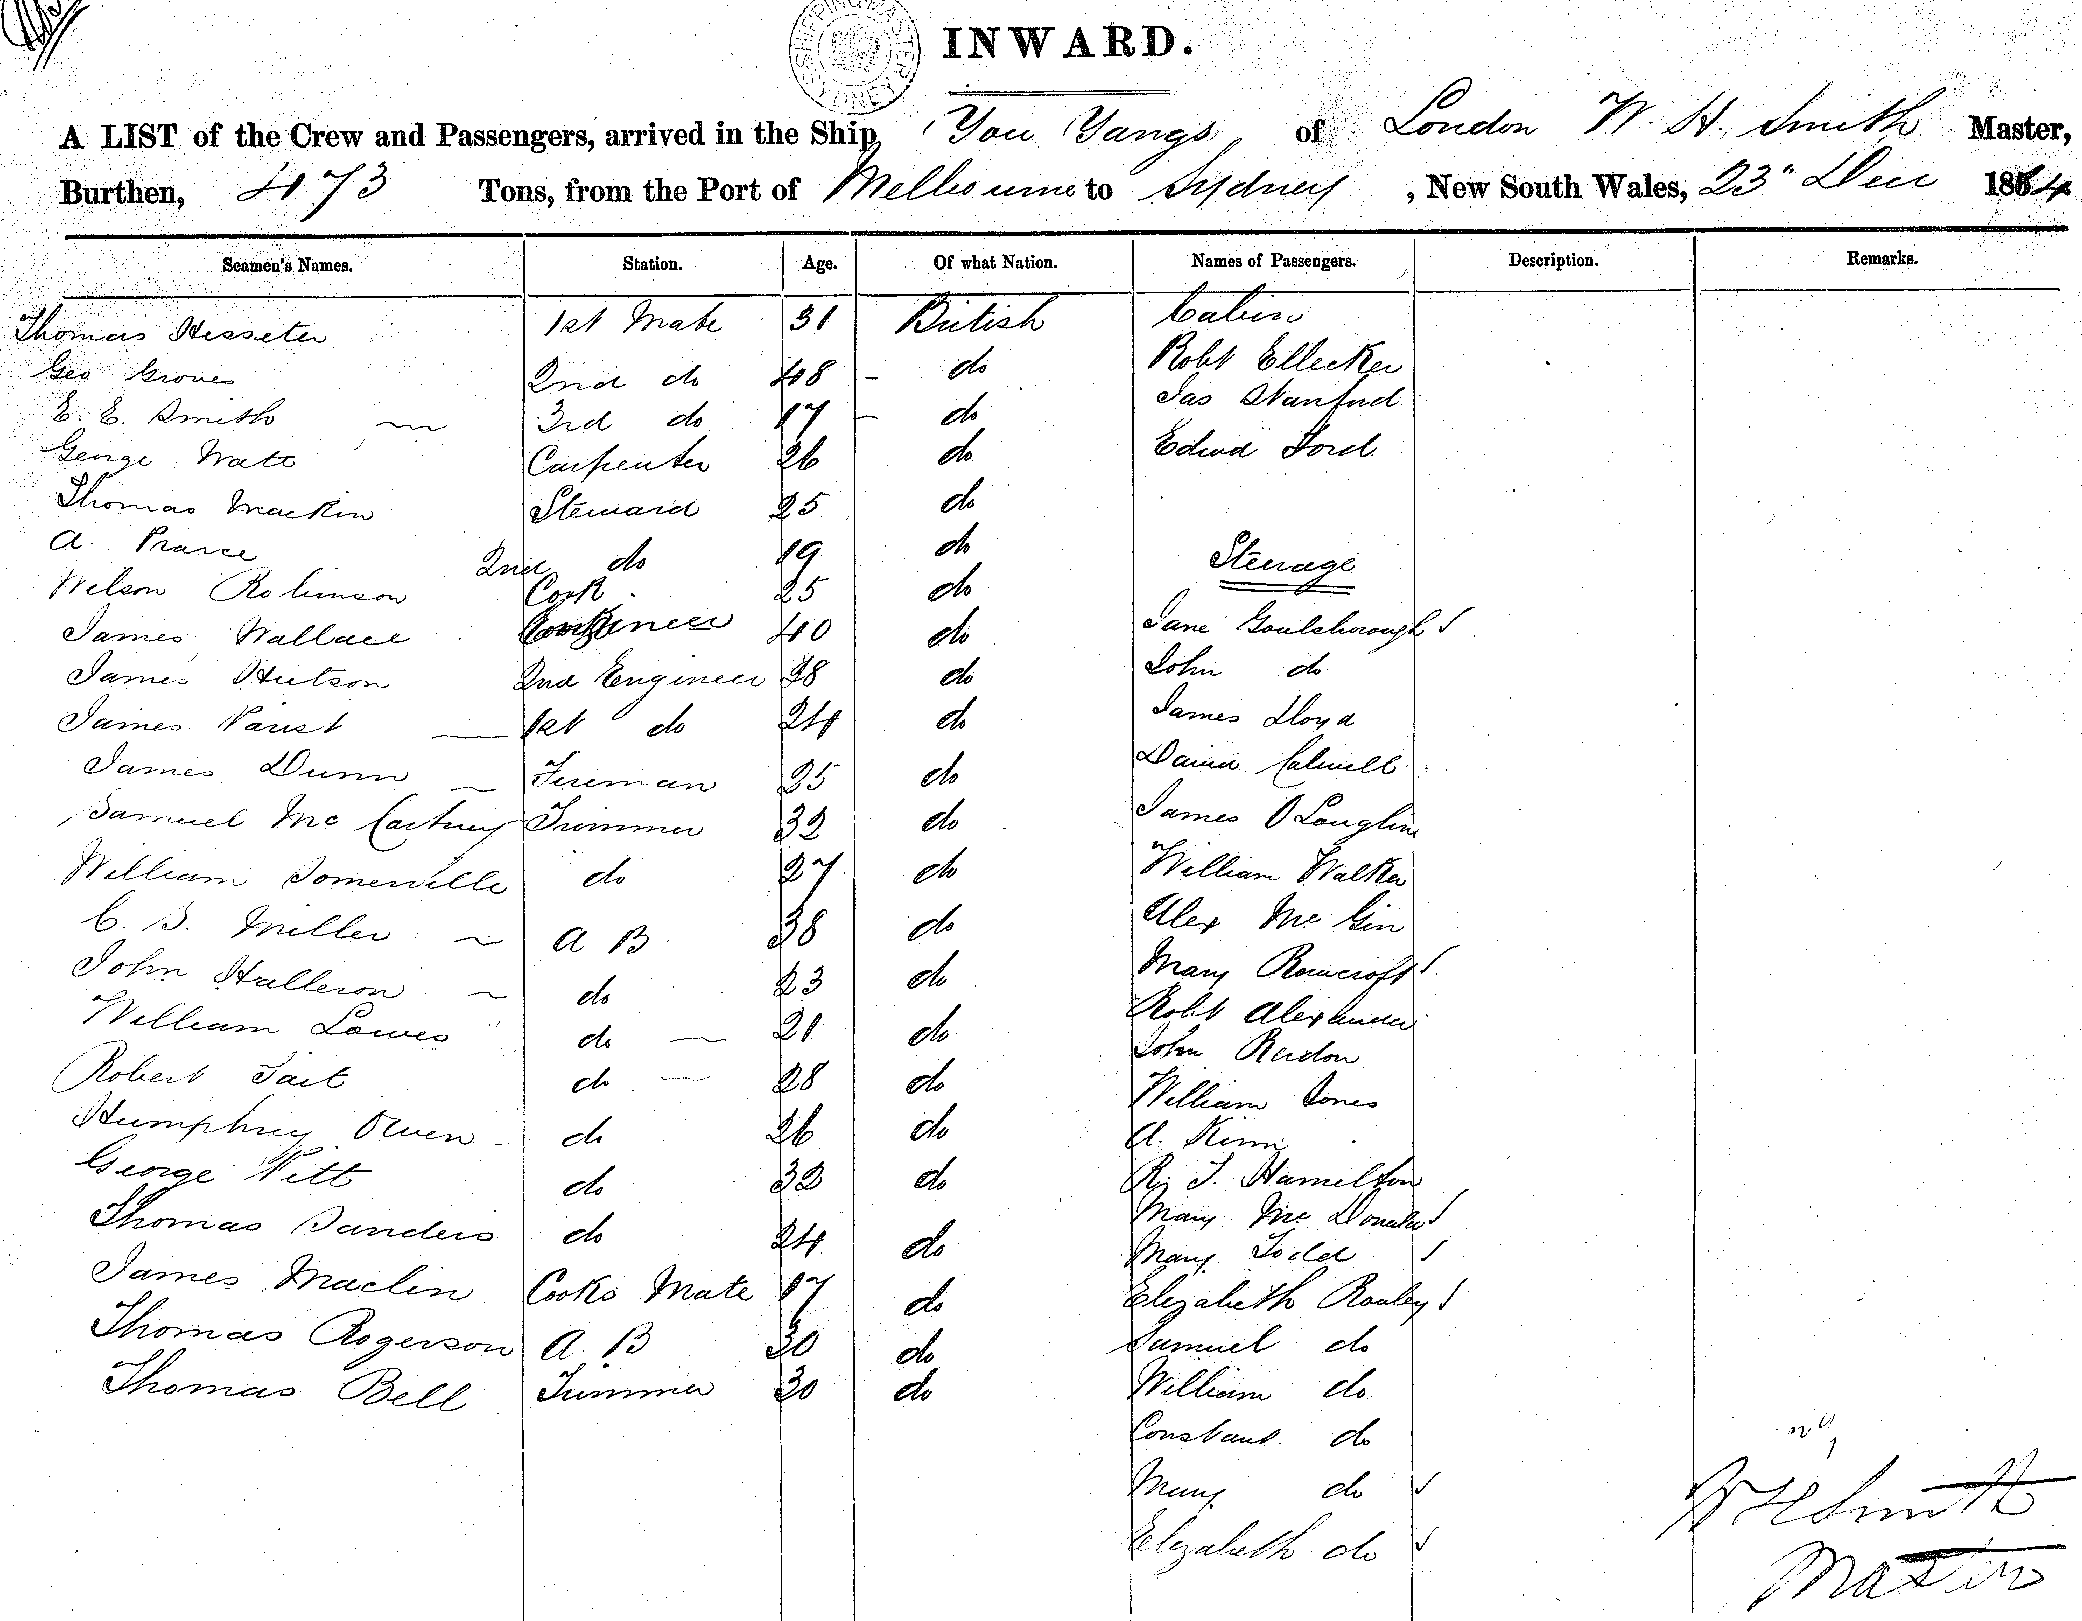 INWARD.
A LIST of the Crew and Passengers, arrived in the Ship You Yangs of London W. H. Smith Master,
Burthen, 473 Tons, from the Port of Melbourne to Sydney, New South Wales, 23" Dec 1864
Seamen's Names. Station. Age. Of what Nation. Names of Passengers. Description. Remarks.
Thomas Hesseter 1st Mate 31 British Cabin
Geo Groves 2nd do 48 do Robt Ellecker
E. E. Smith 3rd do 17 do Jas Stanford
George Watt Carpenter 26 do Edwd Ford
Thomas Mackin Steward 25 do
A. Pearce 2nd do 19 do Steerage
Wilson Robinson Cook 25 do
James Wallace Engineer 40 do Jane Goulsborough
James Hutson 2nd Engineer 28 do John do
James Faust 1st do 24 do James Lloyd
James Dunn Fireman 25 do David Calwell
Samuel Mc Cartney Trimmer 32 do James O'Loughlin
William Somerville do 27 do William Walker
C. S. Miller A B 38 do Alex Mc Gin
John Halleron do 23 do Mary Rowcroft
William Lowes do 21 do Robt Alexander
Robert Tait do 28 do John Reidon
Humphrey Owen do 26 do William Jones
George Witt do 32 do R. J. Hamilton
Thomas Sanders do 24 do Mary Mc Donald
Mary Todd
James Maclin Cooks Mate 17 do Elizabeth Rowley
Thomas Rogerson A. B 30 do Samuel do
Thomas Bell Trimmer 30 do William do
Constant do
Mary do
Elizabeth do
W H Smith
Master